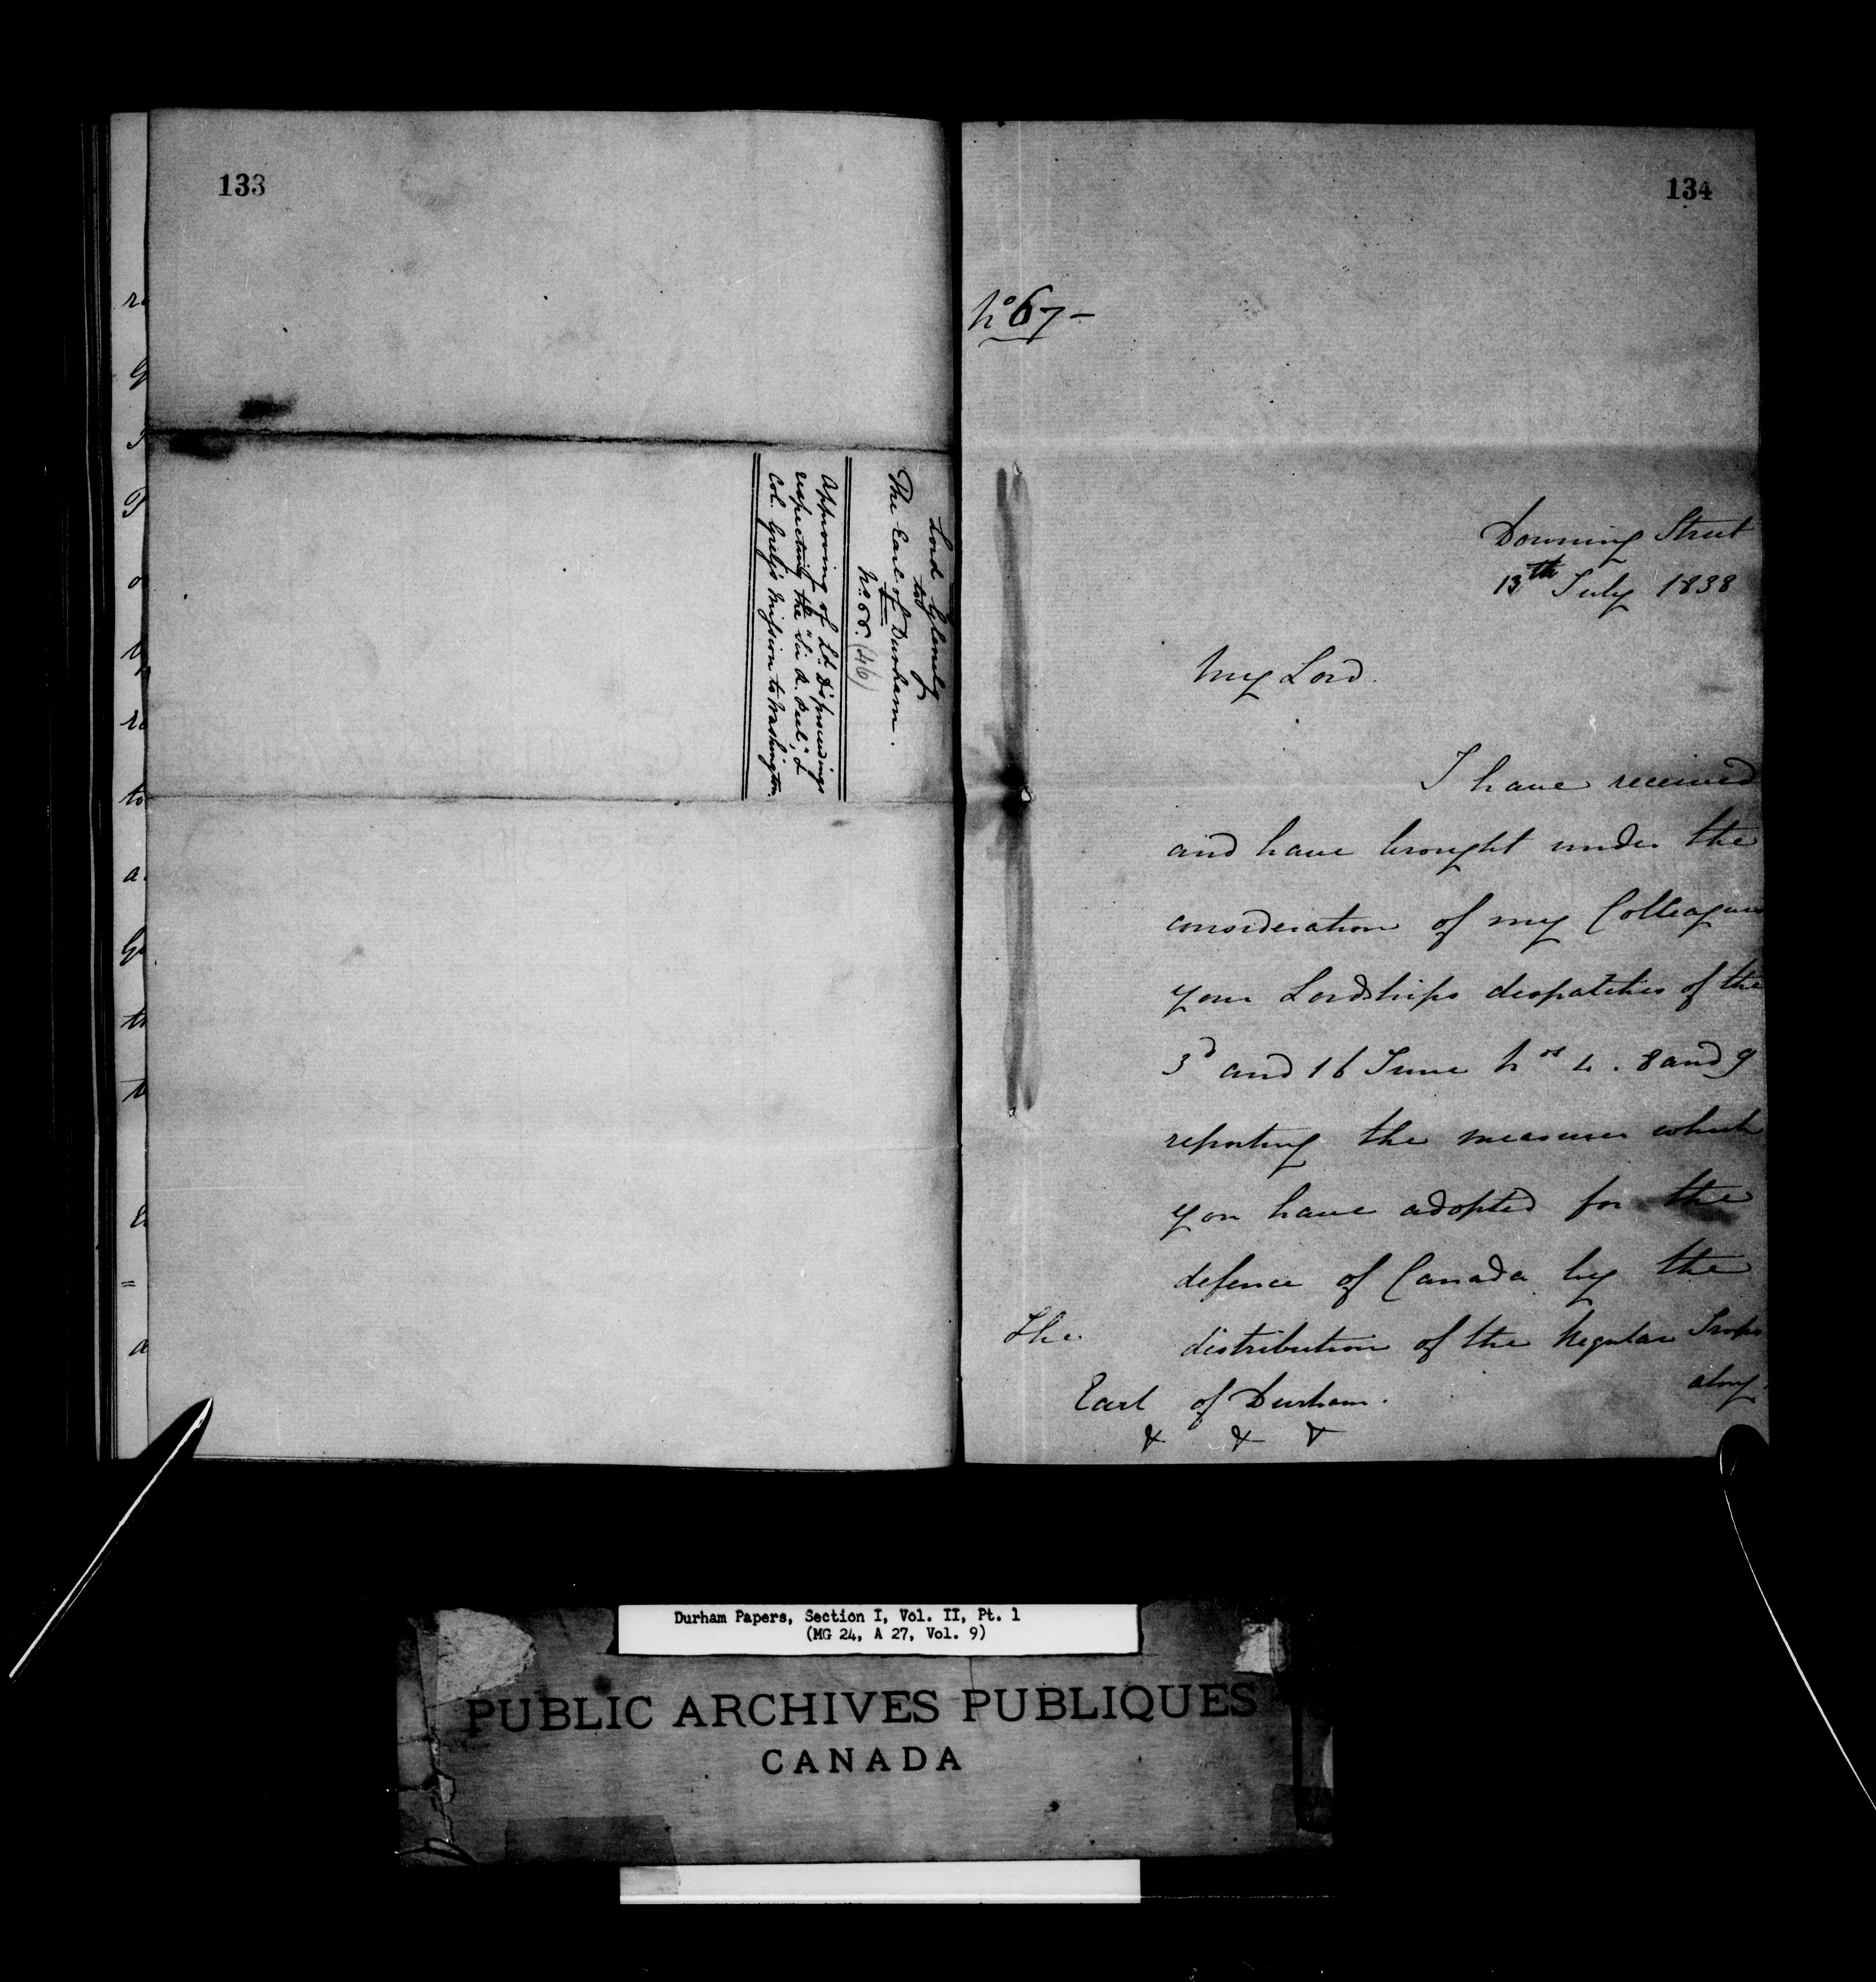 133
Lord Glenelg
to
The Earl of Durham.
No. 66. (46)
Approving of Ld. D's proceedings
respecting the "Sir R. Peel", &
Col. Grey's Mission to Washington.
134
No 67-
Downing Street
13th July 1838
My Lord.
I have received
and have brought under the
consideration of my Colleagues
your Lordships despatches of the
3d and 16 June Nos 4. 8 and 9
reporting the measures which
you have adopted for the
defence of Canada by the
distribution of the Regular Troops
along
The
Earl of Durham.
& & &
Durham Papers, Section I, Vol. II, Pt. 1
(MG 24, A 27, Vol. 9)
PUBLIC ARCHIVES PUBLIQUES
CANADA